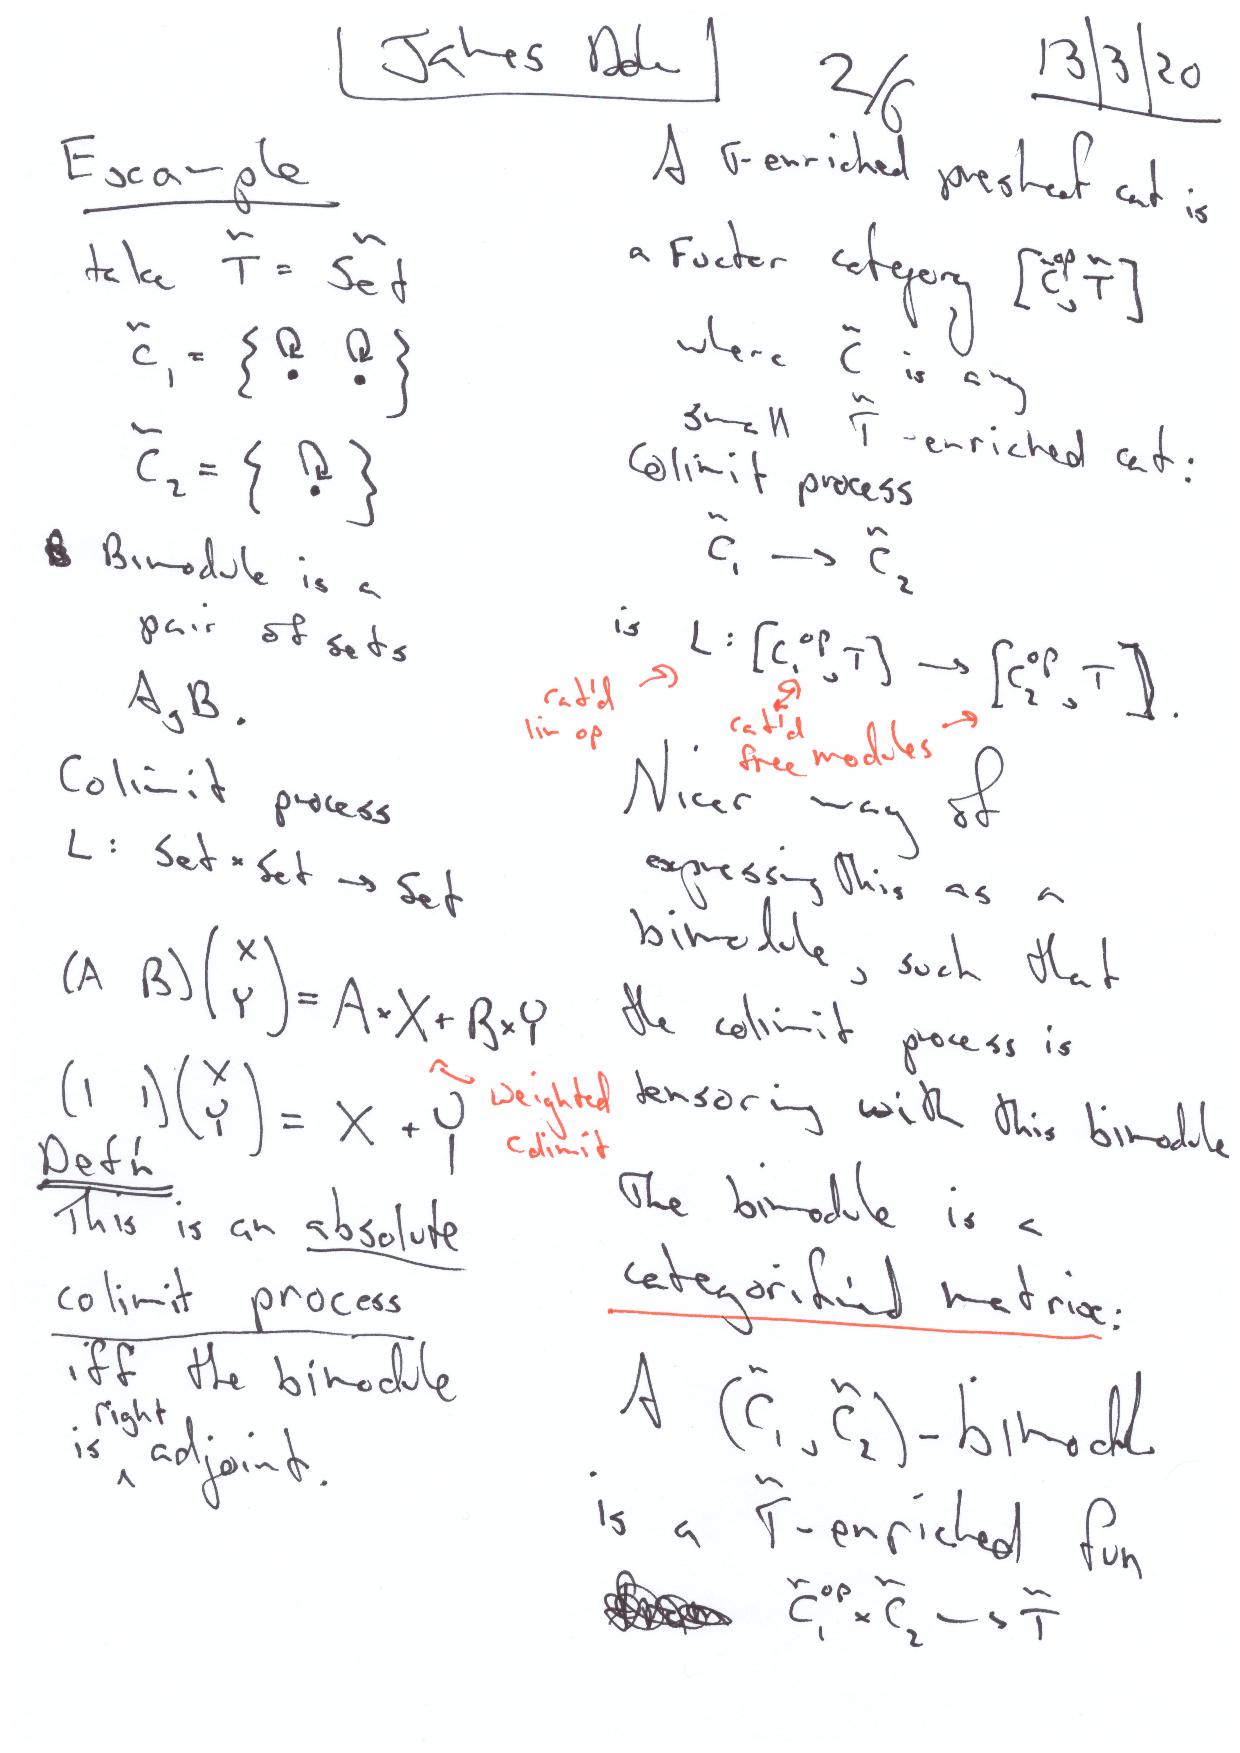 James 2/6 13/3/20
Example
take T̃ = S̃et
C̃₁ = { }
C̃₂ = { }
Bimodule is a
pair of sets
A, B.
Colimit process
L: Set × Set → Set
(A B)(X Y) = A×X + B×Y
weighted
colimit
(1 1)(X Y) = X + Y
Defn
This is an absolute
colimit process
iff the bimodule
is right adjoint.
A T-enriched presheaf cat is
a Fuctor category [C̃ᵒᵖ, T̃]
where C̃ is any
small T̃-enriched cat:
Colimit process
C̃₁ → C̃₂
is L: [C₁ᵒᵖ, T] → [C₂ᵒᵖ, T].
cat'd
lin op
cat'd
free modules
Nicer way of
expressing this as a
bimodule, such that
the colimit process is
tensoring with this bimodule
The bimodule is a
categorified matrix:
A (C̃₁, C̃₂)-bimodule
is a T̃-enriched fun
C̃₁ᵒᵖ × C̃₂ → T̃